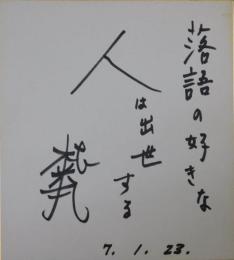 落語の好きな
人は出世する
7.1.23.